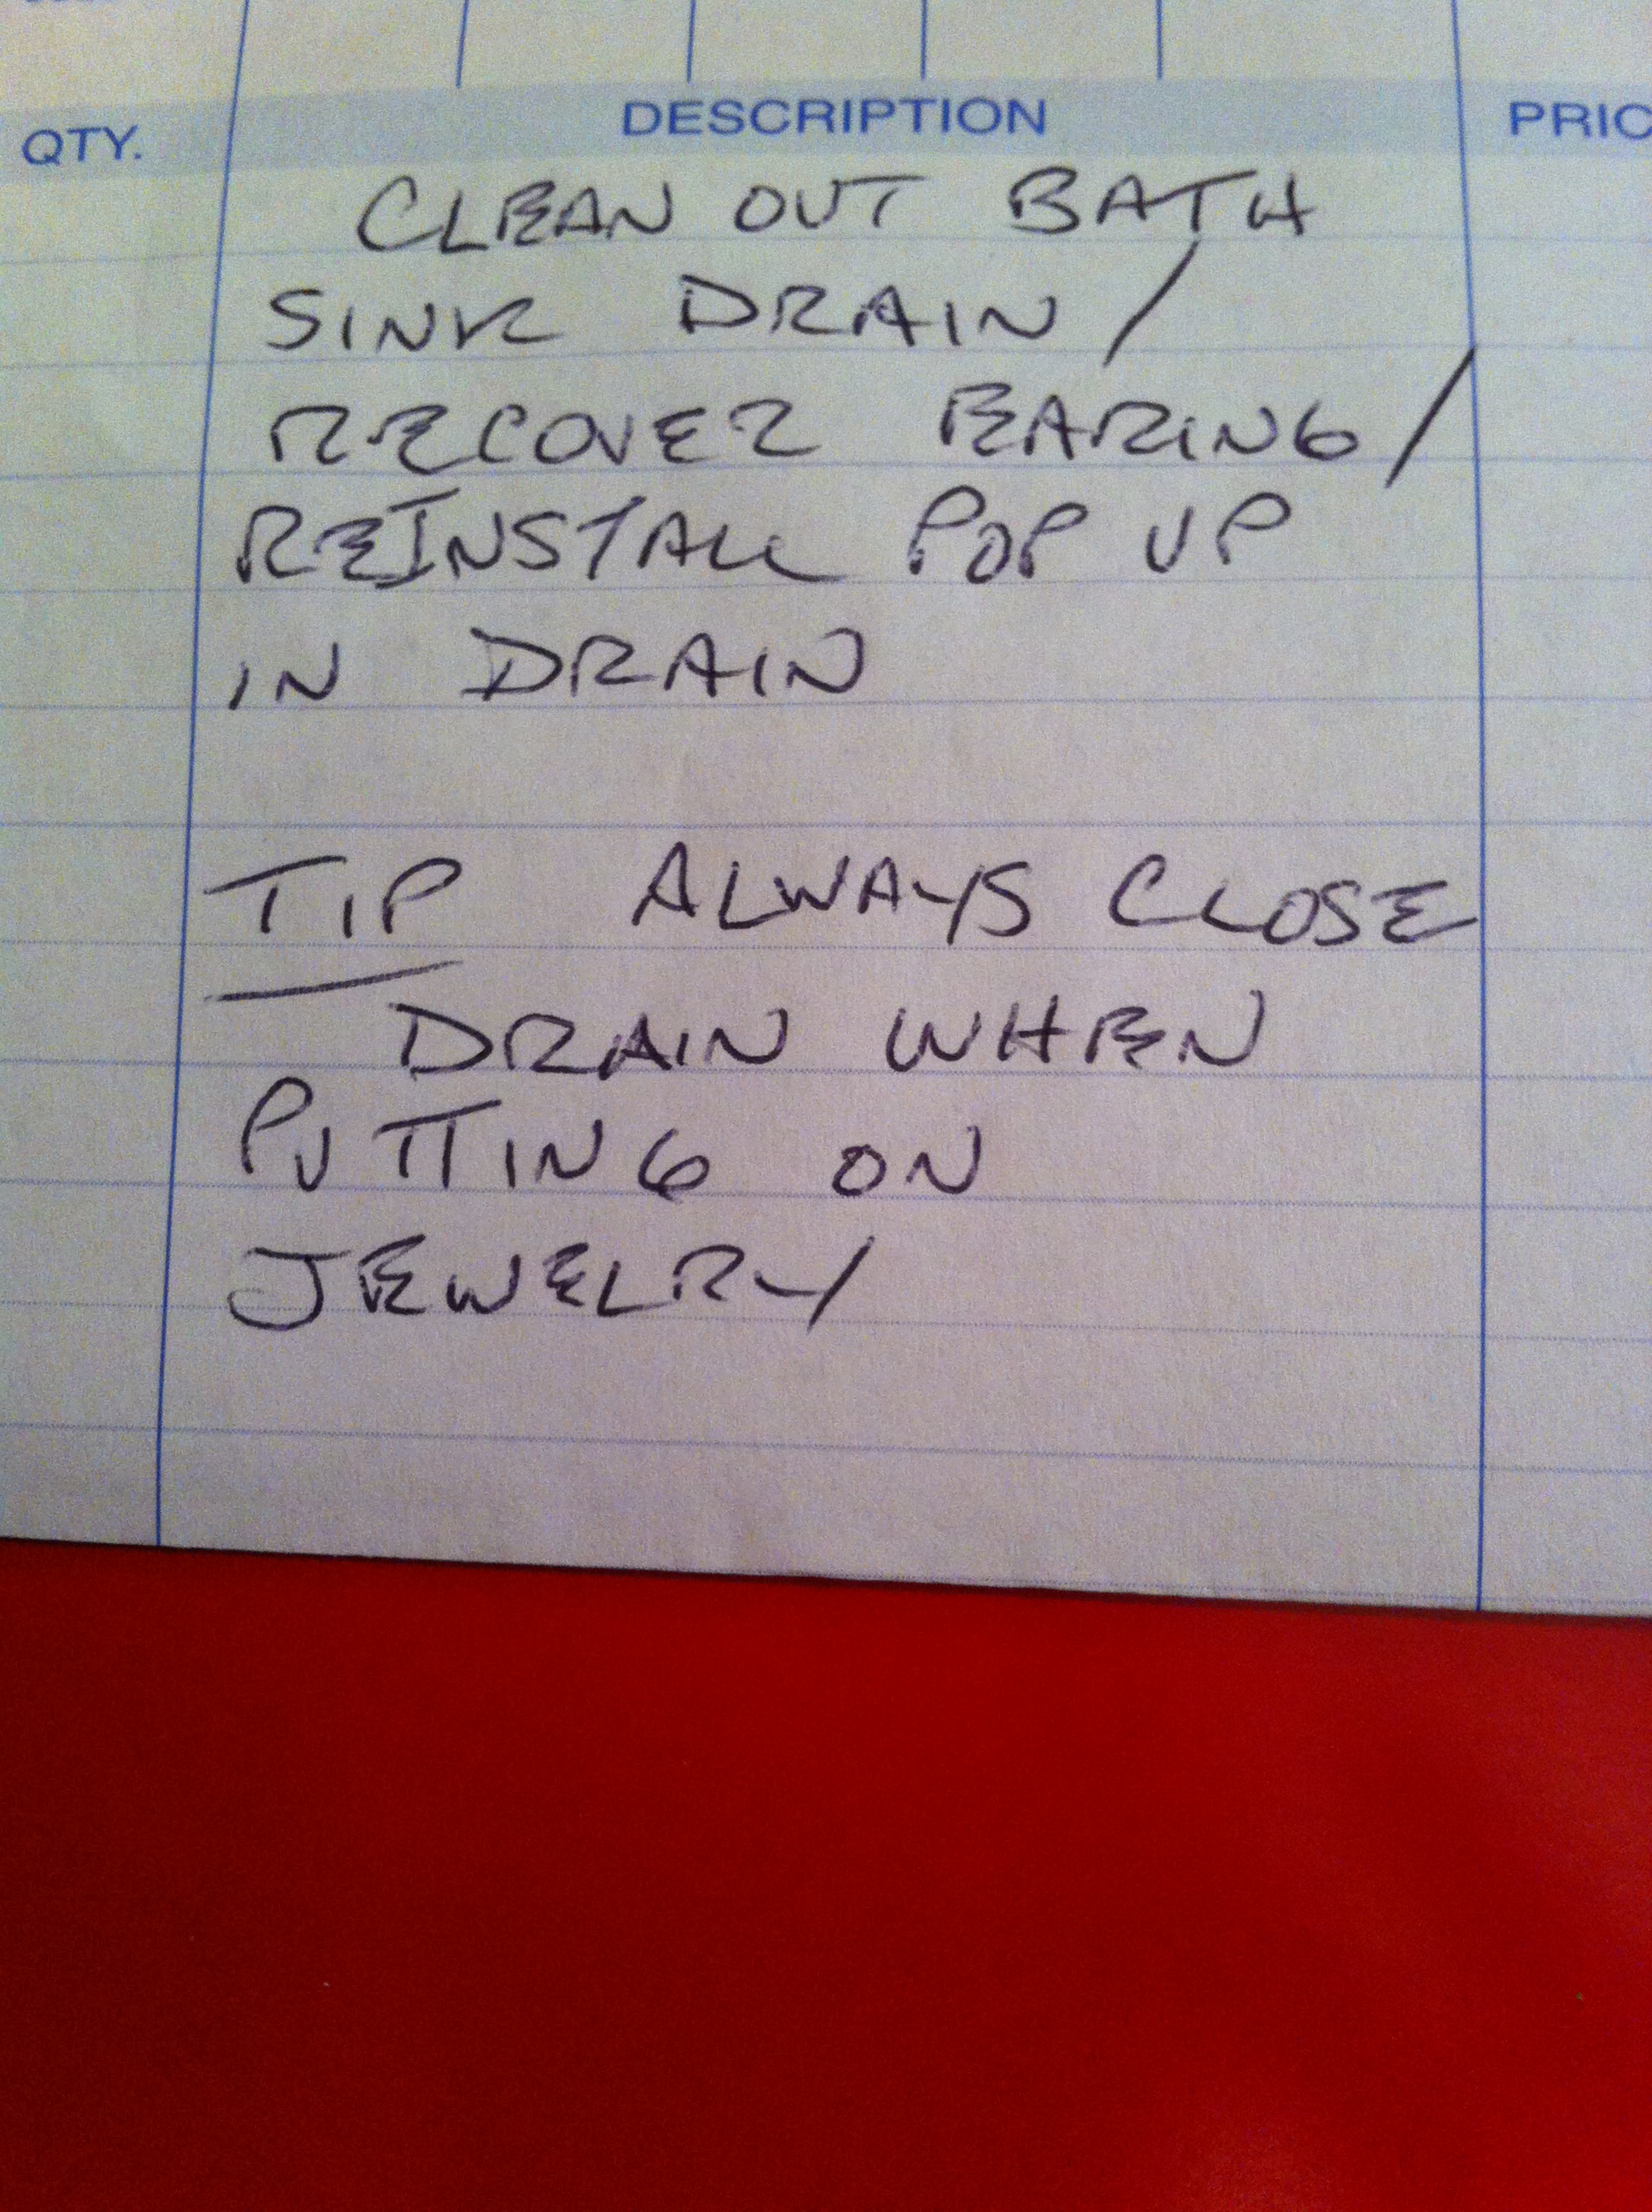 QTY. DESCRIPTION PRIC
CLEAN OUT BATH
SINK DRAIN /
RECOVER EARING /
REINSTALL POP UP
IN DRAIN
TIP ALWAYS CLOSE
DRAIN WHEN
PUTTING ON
JEWELRY